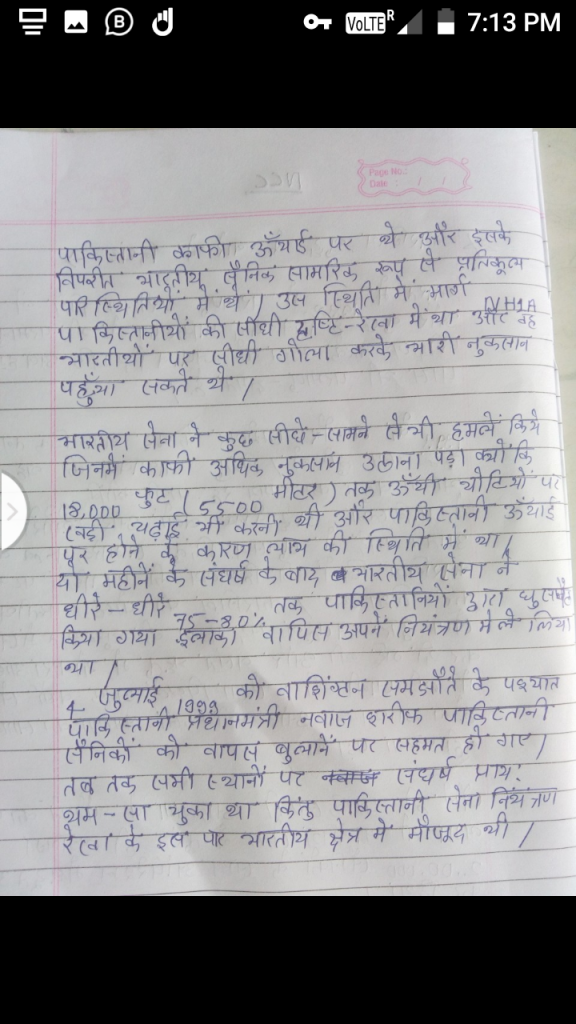 VoLTE R 7:13 PM
Page No.:
Date : / /
NCC
पाकिस्तानी काफी ऊँचाई पर थे और इसके
विपरीत भारतीय सैनिक सामरिक रूप से प्रतिकूल
परिस्थितियों में थे / उस स्थिति में मार्ग NH1A
पाकिस्तानीयों की सीधी दृष्टि-रेखा में था और वह
भारतीयों पर सीधी गोला करके भारी नुकसान
पहुँचा सकते थे /
भारतीय सेना ने कुछ सीधे-सामने से भी हमलें किये
जिनमें काफी अधिक नुकसान उठाना पड़ा क्योंकि
18,000 फुट (5500 मीटर) तक ऊँची चोटियों पर
खड़ी चढ़ाई भी करनी थी और पाकिस्तानी ऊँचाई
पर होने के कारण लाभ की स्थिति में था /
दो महीनें के संघर्ष के बाद भारतीय सेना ने
धीरे-धीरे 75-80% तक पाकिस्तानियों द्वारा घुसपैठ
किया गया ईलाका वापिस अपने नियंत्रण में ले लिया
था /
4 जुलाई 1999 को वाशिंग्टन समझौते के पश्चात
पाकिस्तानी प्रधानमंत्री नवाज शरीफ पाकिस्तानी
सैनिकों को वापस बुलानें पर सहमत हो गए /
तब तक सभी स्थानों पर संघर्ष प्राय:
थम-सा चुका था किंतु पाकिस्तानी सेना नियंत्रण
रेखा के इस पार भारतीय क्षेत्र में मौजूद थी /